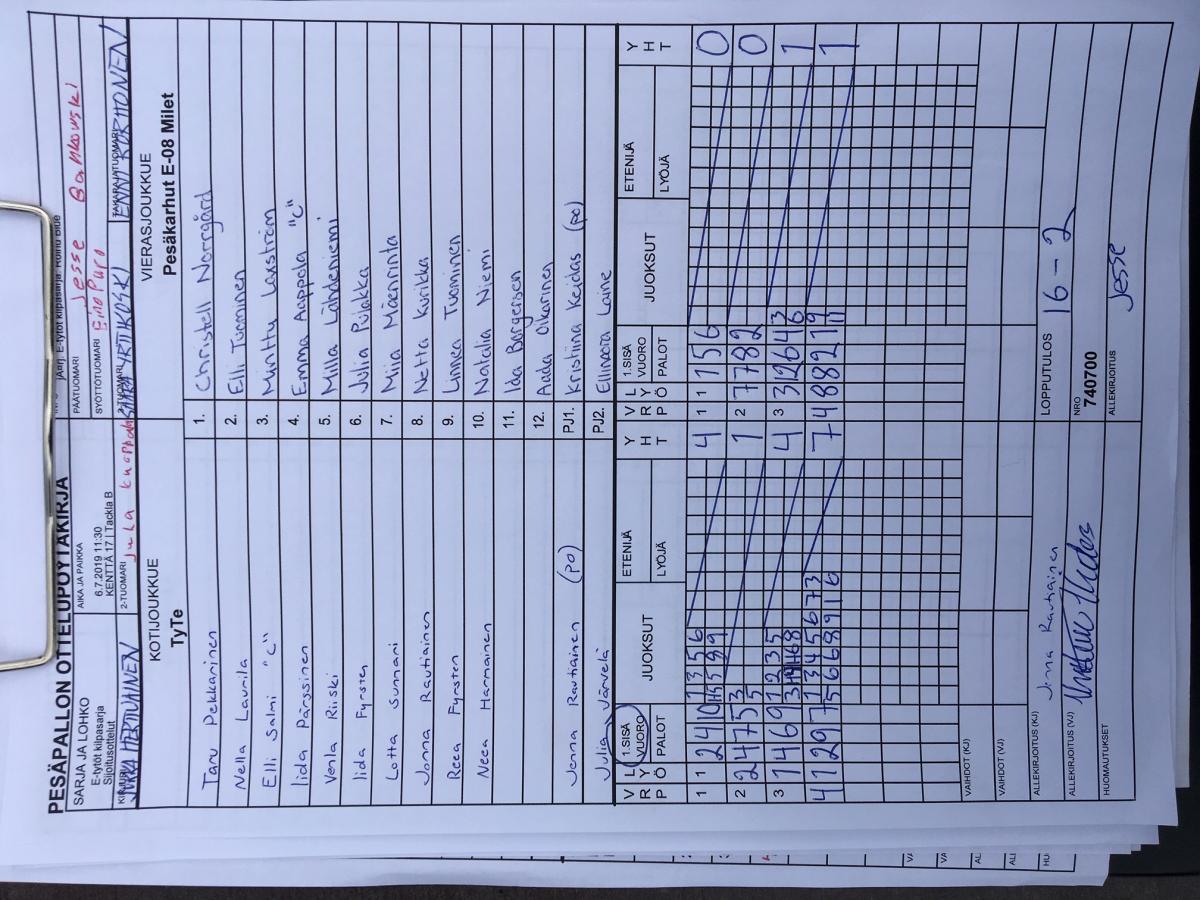 PESÄPALLON OTTELUPÖYTÄKIRJA
SARJA JA LOHKO
E-tytöt kilpasarja
Sijoitusottelut
AIKA JA PAIKKA
6.7.2019 11:30
KENTTÄ 17 | Tackla B
PÄÄTUOMARI
Jesse Bankowski
SYÖTTÖTUOMARI
Eino Puro
2-TUOMARI
Juha
TAKARAJATUOMARI
ENNI KORHONEN
KOTIJOUKKUE
TyTe
Taru Pekkarinen
Nella Laurila
Elli Salmi "C"
Iida Pärssinen
Venla Riiski
Iida Fyrsten
Lotta Sunnari
Jonna Rautiainen
Reea Fyrsten
Neea Harmainen
Jenna Rautiainen (PO)
Julia Järvelä
VIERASJOUKKUE
Pesäkarhut E-08 Milet
1. Christell Norrgård
2. Elli Tuominen
3. Minttu Laxström
4. Emma Aappola "C"
5. Milla Lähdeniemi
6. Julia Pulakka
7. Miia Mäenrinta
8. Netta Kurikka
9. Linnea Tuominen
10. Natalia Niemi
11. Ida Bargersen
12. Aada Oikarinen
PJ1. Kristiina Keidas (PO)
PJ2. Ellinoora Laine
V R L Y P Ö 1.SISÄ VUORO PALOT JUOKSUT ETENIJÄ LYÖJÄ Y H T
V R L Y P Ö 1.SISÄ VUORO PALOT JUOKSUT ETENIJÄ LYÖJÄ Y H T
1 1 2 4 10 1 3 5 6 4
2 2 4 7 5 3 1
5
3 1 4 6 9 1 2 3 5 4
4 1 2 9 7 1 3 4 5 6 7 3 7
5 6 6 8 9 1 6
1 1 1 5 6 0
2 7 7 8 2 0
3 3 12 6 4 3 1
4 8 8 2 1 9 1
VAIHDOT (KJ)
VAIHDOT (VJ)
ALLEKIRJOITUS (KJ)
Jenna Rautiainen
ALLEKIRJOITUS (VJ)
HUOMAUTUKSET
LOPPUTULOS 16 - 2
NRO
740700
ALLEKIRJOITUS
Jesse